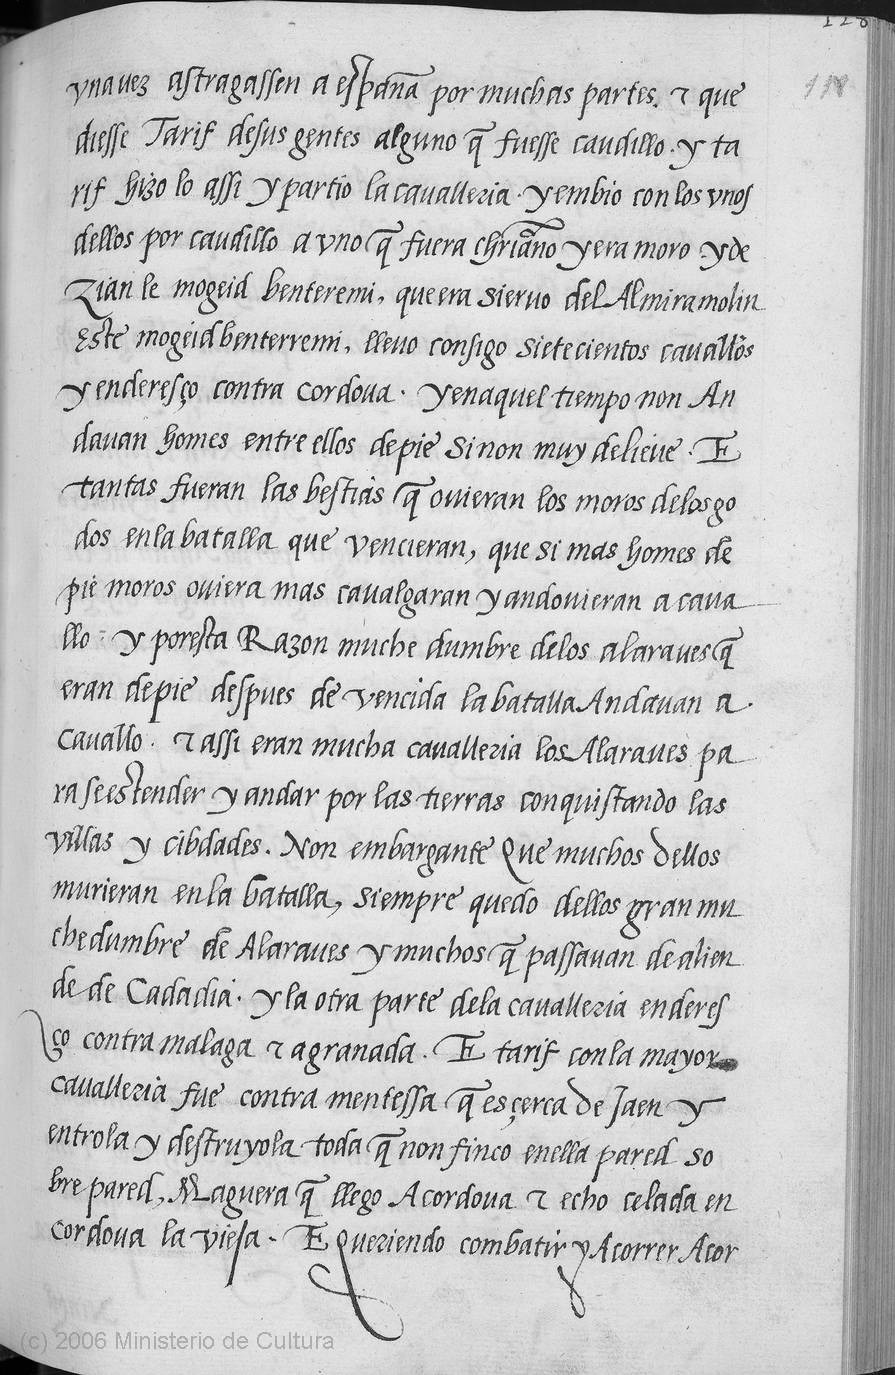 128
118
vna uez astragassen a españa por muchas partes. τ que
diesse Tarif desus gentes alguno q̃ fuesse caudillo. y ta
rif hizo lo assi y partio la caualleria. y embio con los vnos
dellos por caudillo a vno q̃ fuera chriãno y era moro y de
zian le mogeid benteremi, que era sieruo del Almiramolin
Este mogeid benterremi, lleuo consigo sietecientos cauallos
y enderesço contra cordoua. y en aquel tiempo non An
dauan homes entre ellos de pie si non muy delieue. E
tantas fueran las bestias q̃ ouieran los moros delos go
dos en la batalla que vencieran, que si mas homes de
pie moros ouiera mas caualgaran y andouieran a caua
llo y por esta Razon muche dumbre delos alaraues q̃
eran de pie despues de vencida la batalla Andauan a.
cauallo. τ assi eran mucha caualleria los Alaraues pa
ra se estender y andar por las tierras conquistando las
villas y cibdades. Non embargante Que muchos dellos
murieran en la batalla, siempre quedo dellos gran mu
chedumbre de Alaraues y muchos q̃ passauan de alien
de de Cadadia. y la otra parte dela caualleria enderes
ço contra malaga τ a granada. E tarif con la mayor
caualleria fue contra mentessa q̃ es çerca de Jaen y
entrola y destruyola toda q̃ non finco en ella pared so
bre pared, Maguera q̃ llego A cordoua τ echo celada en
cordoua la vieja. E Queriendo combatir y Acorrer Acor
(c) 2006 Ministerio de Cultura